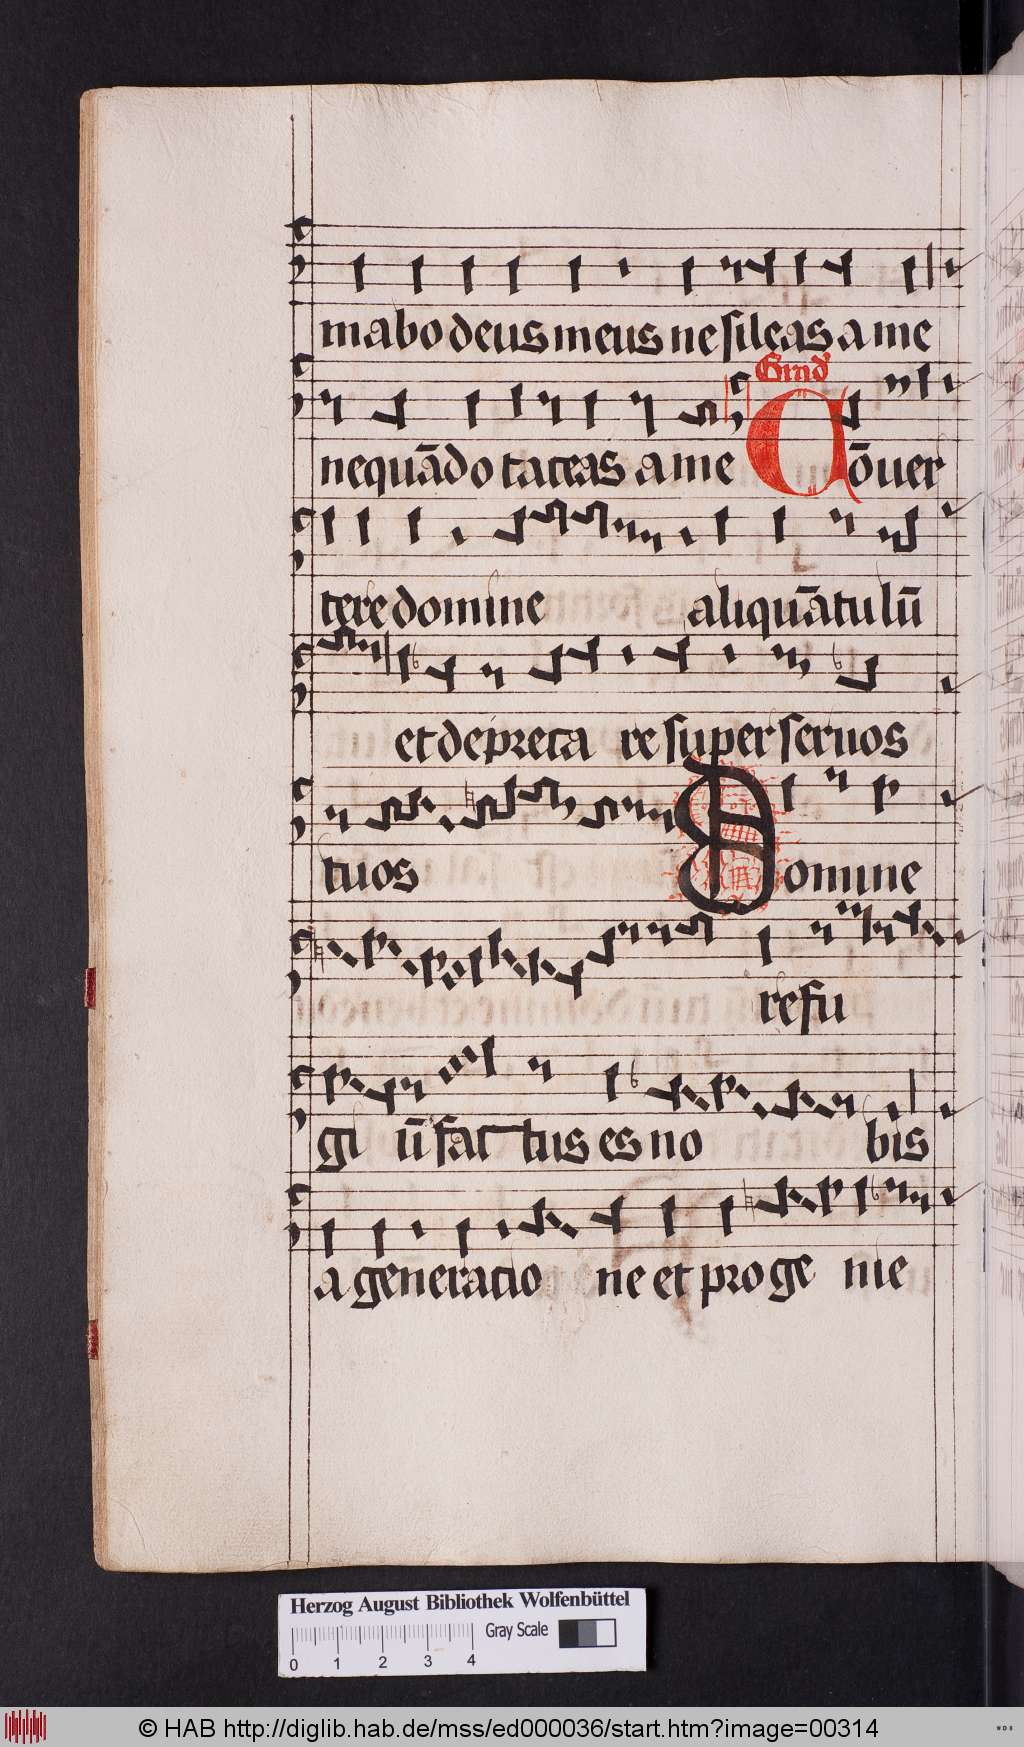 mabo deus meus ne sileas a me
Grad̛
nequā̄do taceas a me Cōuer
tere domine aliquātulū
et depreca re super seruos
tuos Domine
refu
gi ū factus es no bis
a generatio ne et proge nie
Herzog August Bibliothek Wolfenbüttel
Gray Scale
0 1 2 3 4
© HAB http://diglib.hab.de/mss/ed000036/start.htm?image=00314